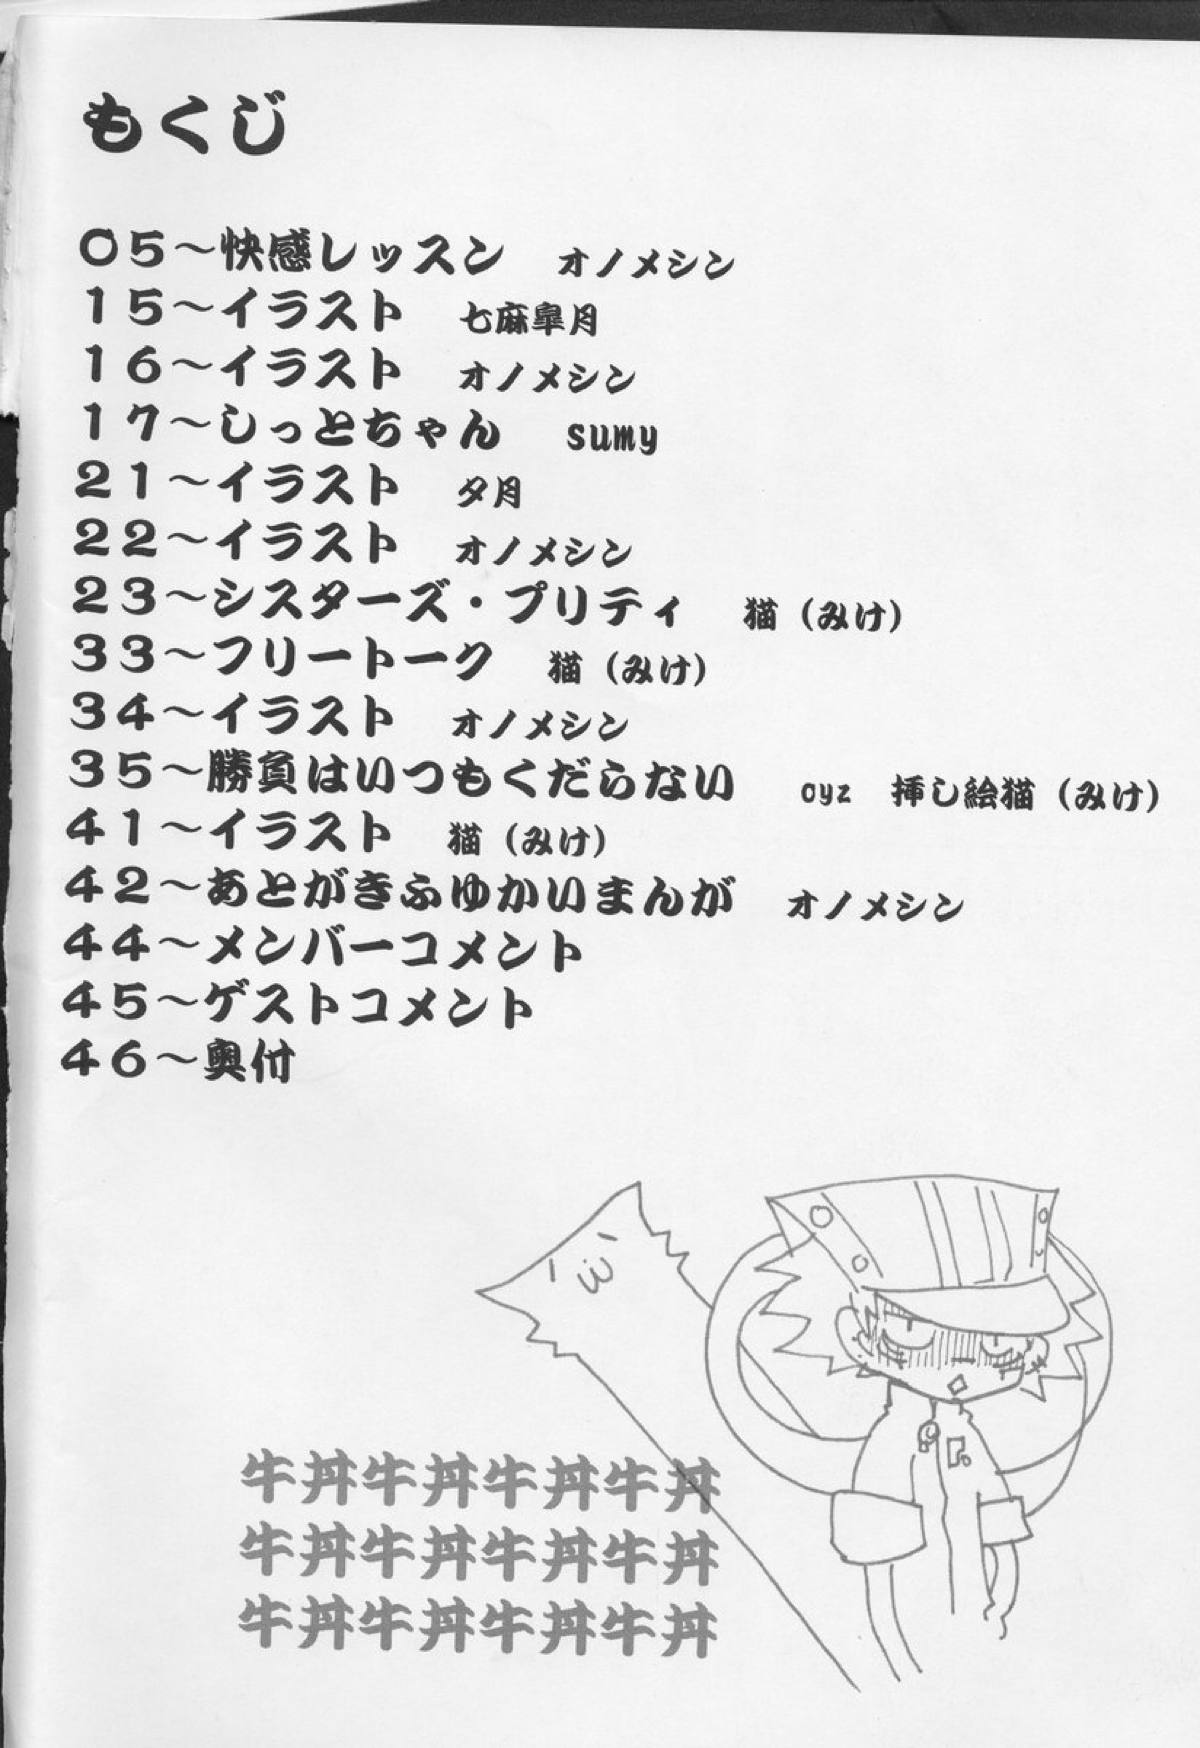 もくじ
05～快感レッスン　オノメシン
15～イラスト　七麻皐月
16～イラスト　オノメシン
17～しっとちゃん　sumy
21～イラスト　夕月
22～イラスト　オノメシン
23～シスターズ・プリティ　猫（みけ）
33～フリートーク　猫（みけ）
34～イラスト　オノメシン
35～勝負はいつもくだらない　cyz　挿し絵猫（みけ）
41～イラスト　猫（みけ）
42～あとがきふゆかいまんが　オノメシン
44～メンバーコメント
45～ゲストコメント
46～奥付
牛丼牛丼牛丼牛丼
牛丼牛丼牛丼牛丼
牛丼牛丼牛丼牛丼